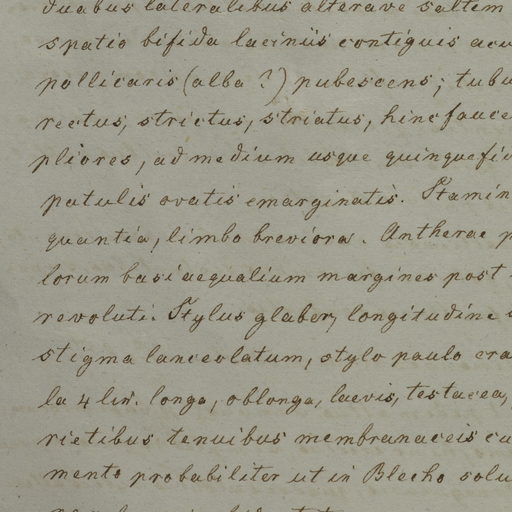 duabus lateralibus alterave saltem
spatio bifida laciniis contiguis acu
pollicaris (alba?) pubescens; tubu
rectus, strictus, striatus, hinc fauce
pliores, ad medium usque quinquefid
patulis ovatis emarginatis. Stamin
quantia, limbo breviora. Antherae p
lorum basi aequalium margines post
revoluti. Stylus glaber, longitudine
stigma lanceolatum, stylo paulo cra
la 4 lin. longa, oblonga, laevis, testacea,
rietibus tenuibus membranaceis cu
mento probabiliter ut in Blecho solu